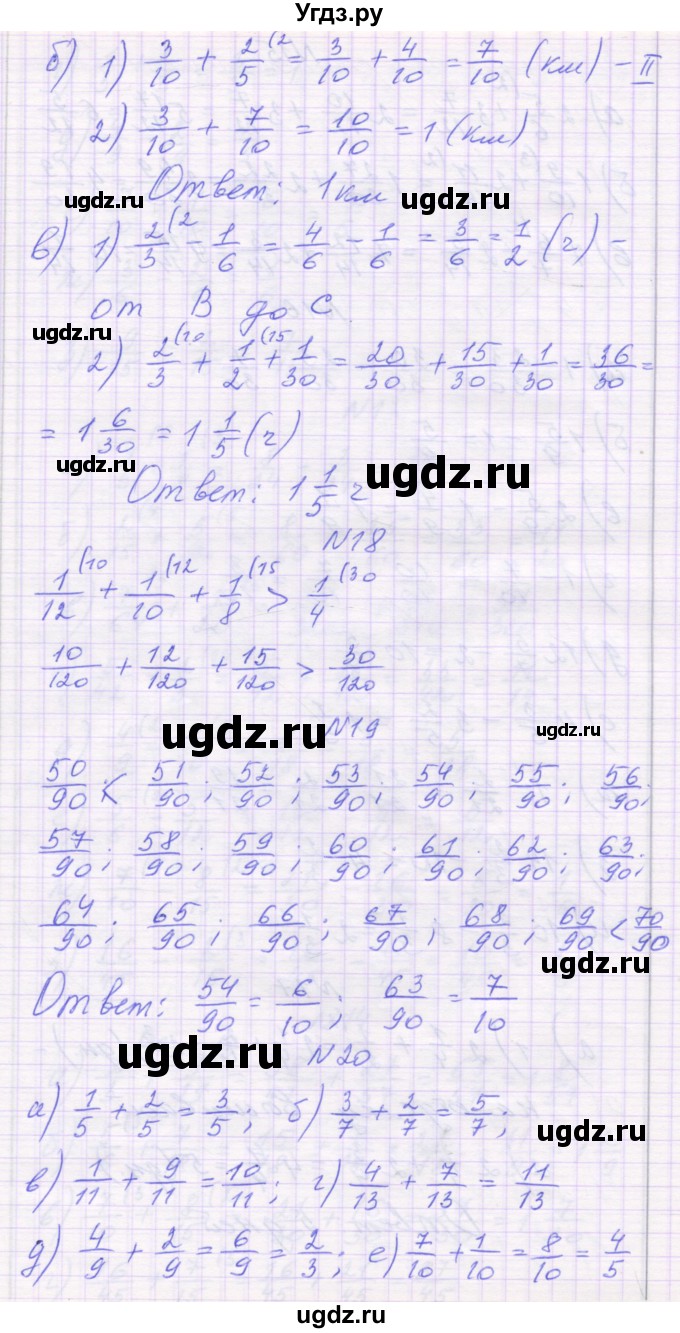 Угдз.ру
б) 1) 3/10 + 2/5 (2 = 3/10 + 4/10 = 7/10 (км) - II
2) 3/10 + 7/10 = 10/10 = 1 (км)
Ответ: 1 км
ugdz.ru ugdz.ru
в) 1) 2/3 (2 - 1/6 = 4/6 - 1/6 = 3/6 = 1/2 (ч) -
от В до С.
ugdz.ru ugdz.ru
2) 2/3 (10 + 1/2 (15 + 1/30 = 20/30 + 15/30 + 1/30 = 36/30 =
= 1 6/30 = 1 1/5 (ч)
ugdz.ru ugdz.ru
Ответ: 1 1/5 ч
N18
1/12 (10 + 1/10 (12 + 1/8 (15 > 1/4 (30
10/120 + 12/120 + 15/120 > 30/120
ugdz.ru ugdz.ru
N19
50/90 < 51/90; 52/90; 53/90; 54/90; 55/90; 56/90;
57/90; 58/90; 59/90; 60/90; 61/90; 62/90; 63/90;
64/90; 65/90; 66/90; 67/90; 68/90; 69/90 < 70/90
ugdz.ru
Ответ: 54/90 = 6/10; 63/90 = 7/10
ugdz.ru
N20
а) 1/5 + 2/5 = 3/5; б) 3/7 + 2/7 = 5/7;
ugdz.ru
в) 1/11 + 9/11 = 10/11; г) 4/13 + 7/13 = 11/13
д) 4/9 + 2/9 = 6/9 = 2/3; е) 7/10 + 1/10 = 8/10 = 4/5
ugdz.ru